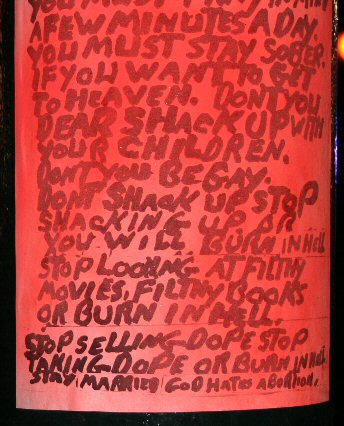 YOU MUST
A FEW MINUTES A DAY.
YOU MUST STAY SOBER.
IF YOU WANT TO GET
TO HEAVEN. DONT YOU
DEAR SHACK UP WITH
YOUR CHILDREN.
DONT YOU BE GAY.
DONT SHACK UP STOP
SHACKING UP OR
YOU WILL BURN IN HELL
STOP LOOKING AT FILTHY
MOVIES, FILTHY BOOKS
OR BURN IN HELL
STOP SELLING DOPE STOP
TAKING DOPE OR BURN IN HELL
STAY MARRIED GOD HATES ABORTION.